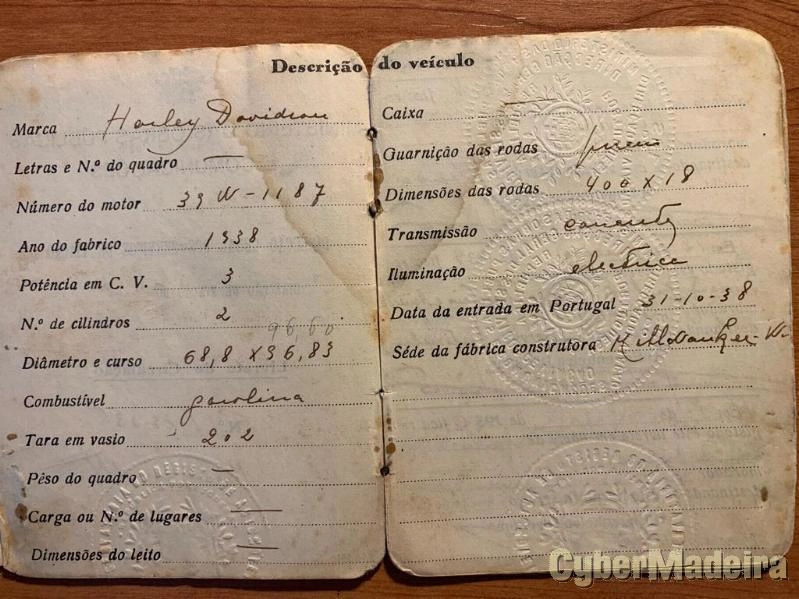 Descrição do veículo
Marca Harley Davidson
Letras e N.º do quadro —
Número do motor 39 W-1187
Ano do fabrico 1938
Potência em C. V. 3
N.º de cilindros 2
Diâmetro e curso 68,8 x 96,83
Combustível gasolina
Tara em vasio 202
Pêso do quadro —
Carga ou N.º de lugares —
Dimensões do leito —
Caixa —
Guarnição das rodas pneus
Dimensões das rodas 400 x 18
Transmissão corrente
Iluminação electrica
Data da entrada em Portugal 31-10-38
Séde da fábrica construtora
CyberMadeira